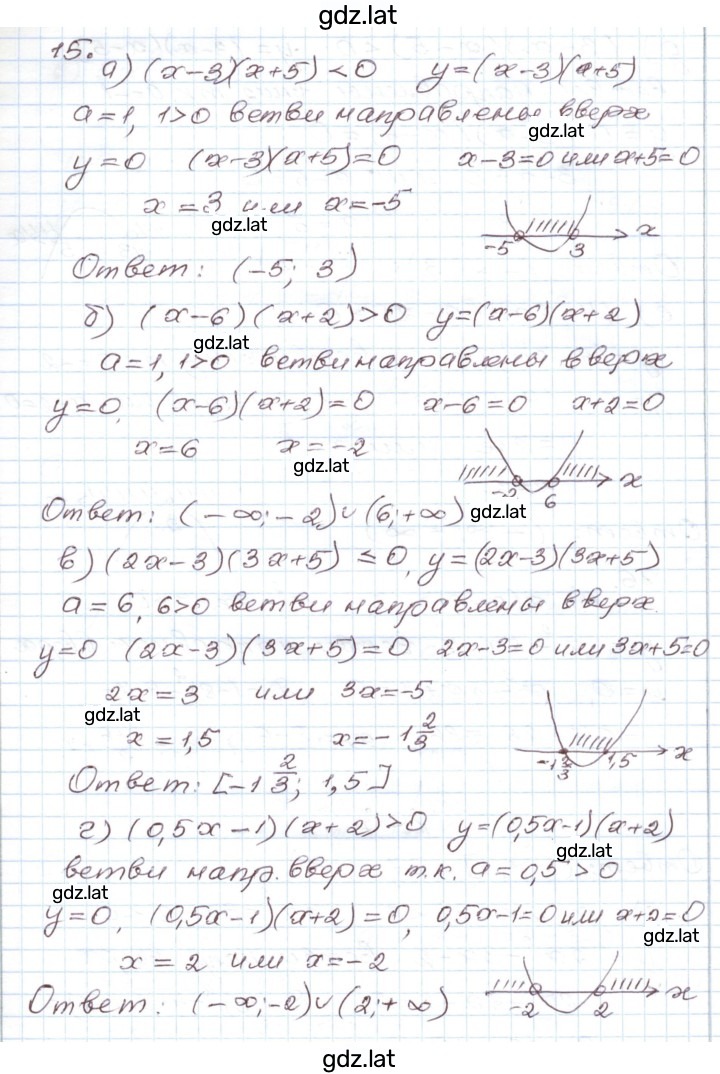 gdz.lat
15.
а) (x-3)(x+5) < 0 y=(x-3)(x+5)
a=1, 1>0 ветви направлены вверх
gdz.lat
y=0 (x-3)(x+5)=0 x-3=0 или x+5=0
x = 3 или x=-5
gdz.lat
-5 3 x
Ответ: (-5; 3)
б) (x-6)(x+2)>0 y=(x-6)(x+2)
gdz.lat
a=1, 1>0 ветви направлены вверх
y=0, (x-6)(x+2)=0 x-6=0 x+2=0
x=6 x=-2
gdz.lat
-2 6 x
Ответ: (-∞;-2)∪(6;+∞)
gdz.lat
в) (2x-3)(3x+5) ≤ 0, y=(2x-3)(3x+5)
a=6, 6>0 ветви направлены вверх
y=0 (2x-3)(3x+5)=0 2x-3=0 или 3x+5=0
2x=3 или 3x=-5
gdz.lat
x=1,5 x=-1 2/3
-1 2/3 1,5 x
Ответ: [-1 2/3; 1,5]
г) (0,5x-1)(x+2)>0 y=(0,5x-1)(x+2)
gdz.lat
ветви напр. вверх т.к. a=0,5>0
gdz.lat
y=0, (0,5x-1)(x+2)=0, 0,5x-1=0 или x+2=0
gdz.lat
x = 2 или x=-2
-2 2 x
Ответ: (-∞;-2)∪(2;+∞)
gdz.lat